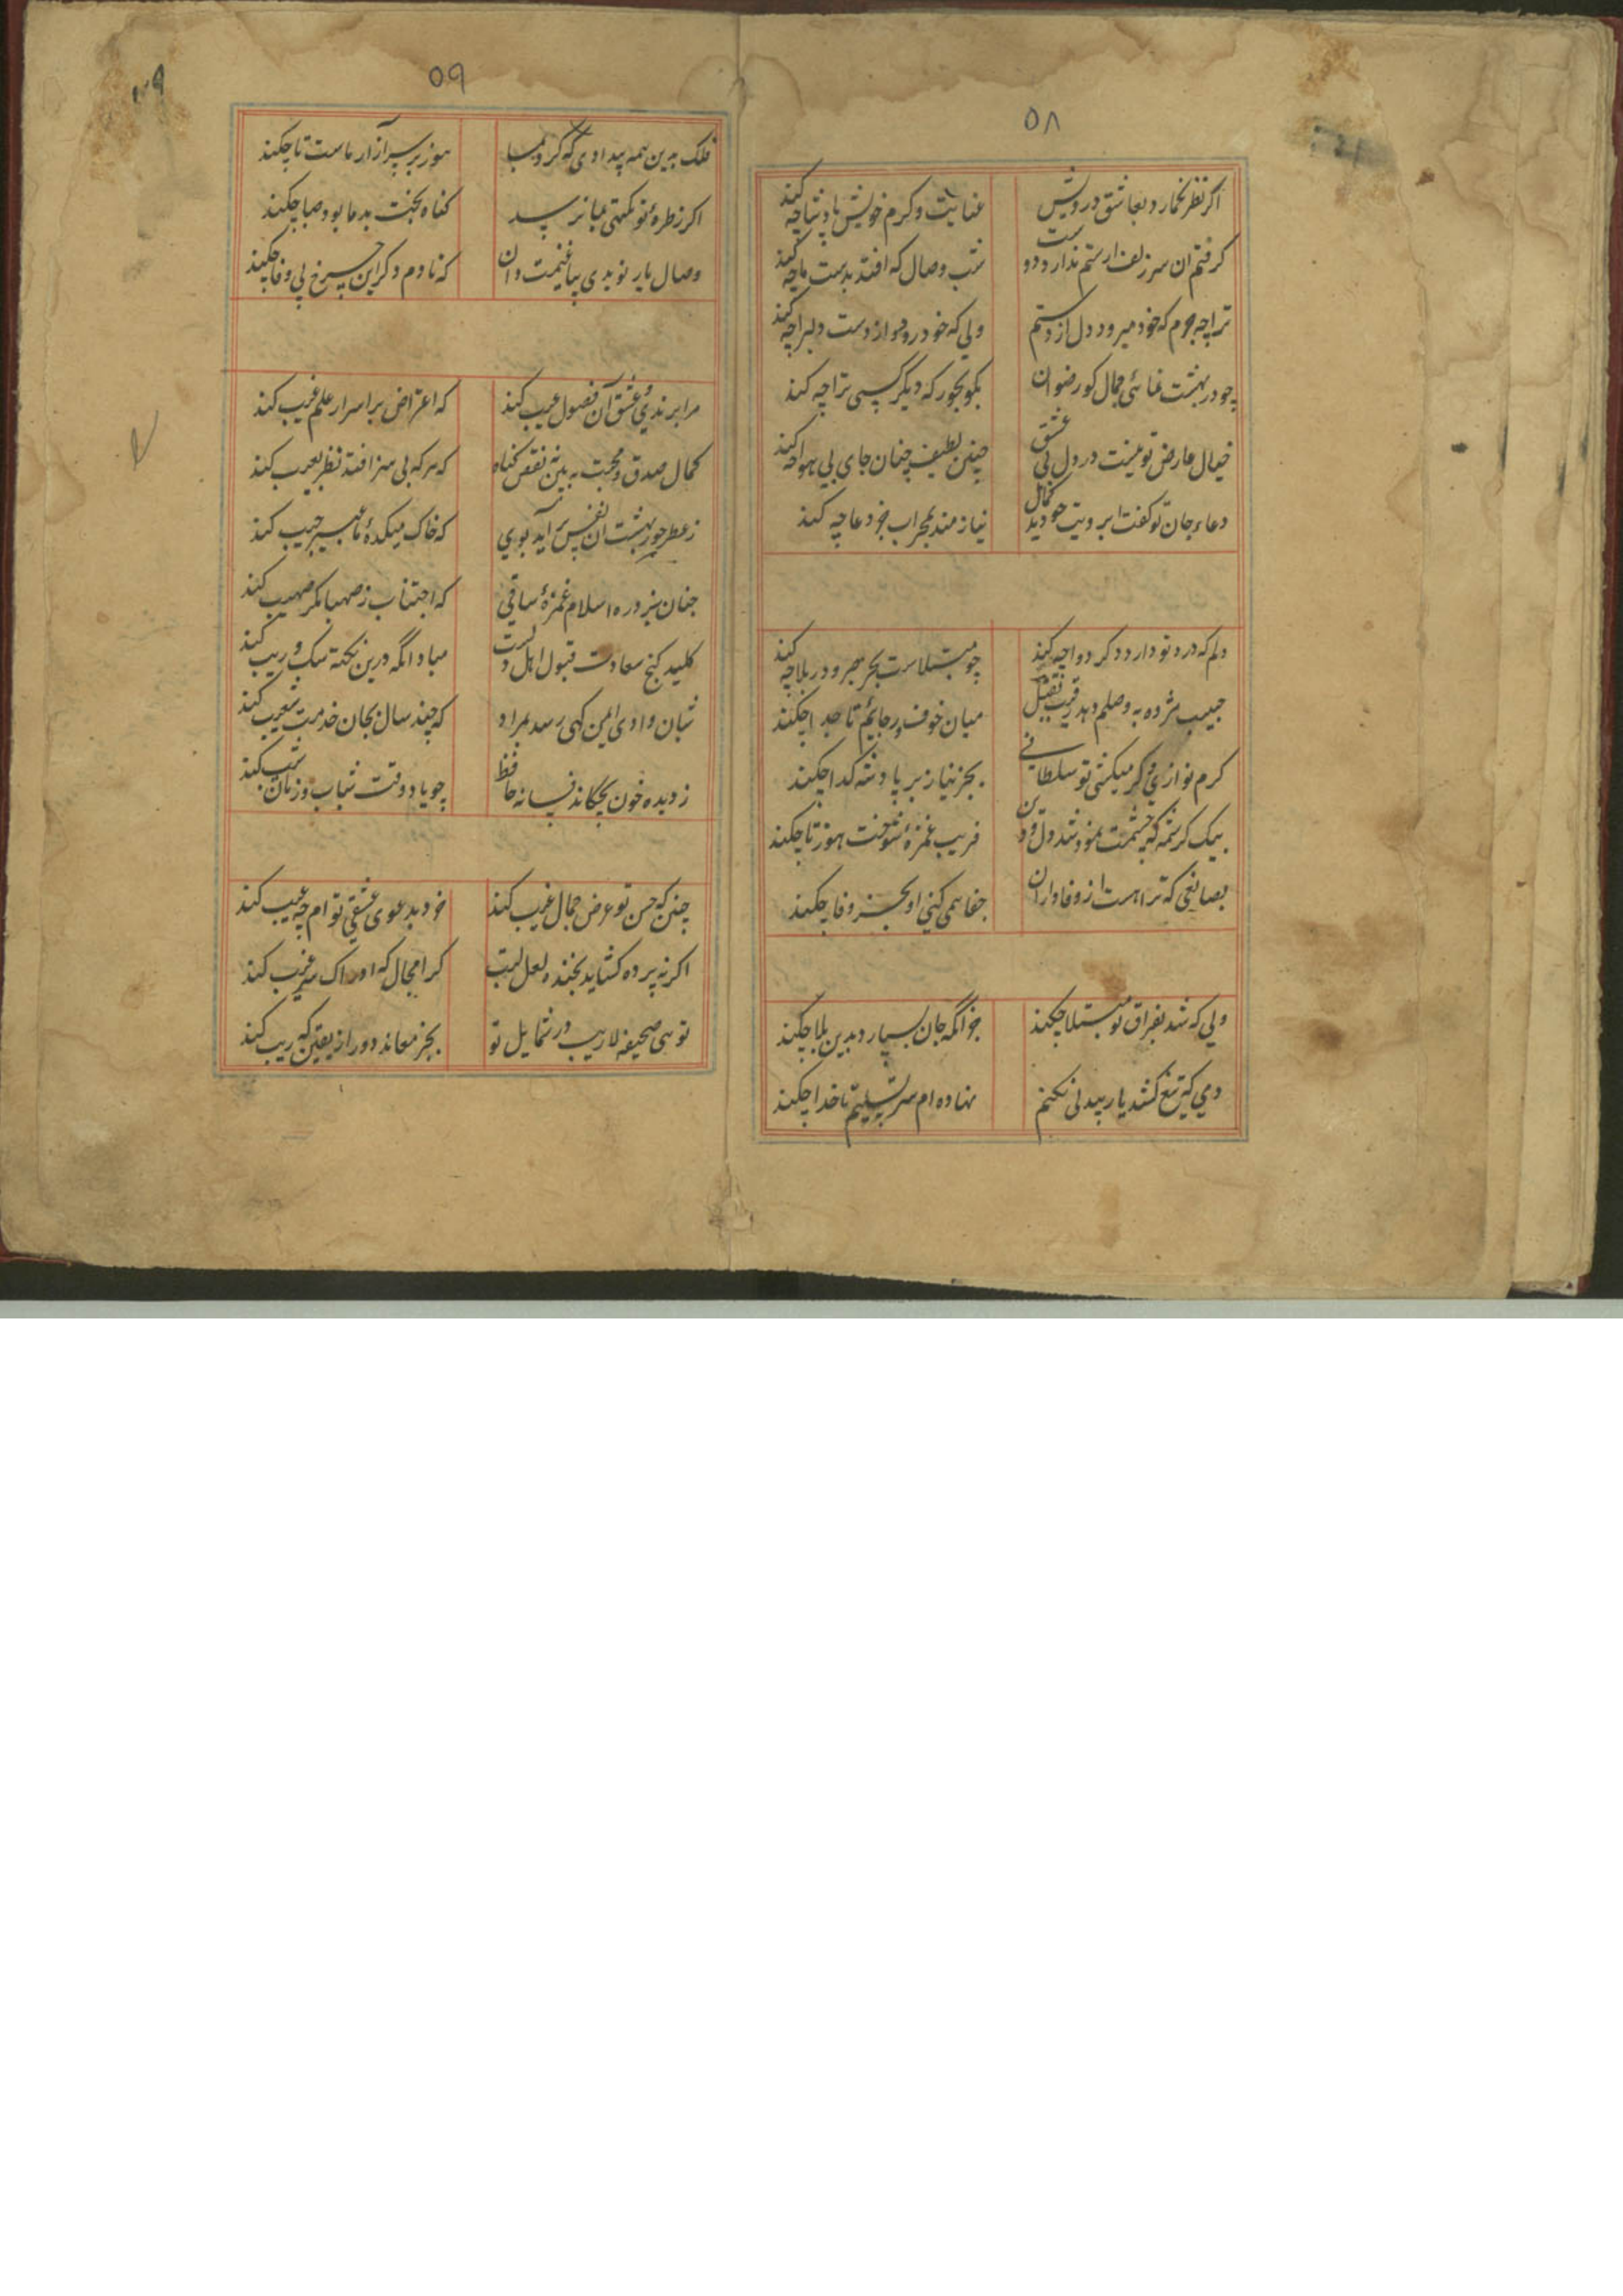 ۵۸
اگر نظر نگمارد بعاشق درویش عنایت و کرم خویش پادشا چه کند
گرفتم ان سر زلف ار ستم ندارد دوست شب وصال که افتد بدست ما چه کند
ترا چه جرم که خود میرود دل از دستم ولی که خود رود از دست دلبرا چه کند
چو در بهشت نمائی جمال کو رضوان بکو بحور که دیگر کسی ترا چه کند
خیال عارض تو نیست در دل بی عشق چنین لطیف چنان جای بی هوا چه کند
دعاء جان تو کفت ابرویت چو دید کمال نیازمند بمحراب جز دعا چه کند
دلم که درد تو دارد دکر دوا چه کند چو مبتلاست بحر هجر و در بلا چه کند
حبیب مژده به وصلم دهد رقیب بقتل میان خوف و رجایم تا خدا چکند
کرم نوازی و کر میکشی تو سلطانی بجز نیاز بر پادشه کدا چکند
بیک کرشمه که چشمت نمود شد دل و دین فریب غمزهٔ شوخت هنوز تا چکند
جفا همی کنی او بجز وفا چکند
ولی که شد بفراق تو مبتلا چکند جز آنکه جان بسپارد بدین بلا چکند
دمی که تیغ کشد یار بیدلی نکنم نهاده ام سر تسلیم تا خدا چکند
۵۹
فلک بدین همه بیدادی که کرد بما هنوز بر سر آزار ماست تا چکند
اکر ز طرهٔ تو نکهتی بما نرسید کناه بخت بد ما بود صبا چکند
وصال یار نویدی بیا غنیمت دان که تا دم دکر این چرخ بی وفا چکند
مرا برندی و عشق آن فضول عیب کند که اعتراض بر اسرار علم غیب کند
کمال صدق و محبت ببین نه نقص کناه که هر که بی هنر افتد نظر بعیب کند
ز عطر حور بهشت آن نفس برآید بوی که خاک میکدهٔ ما عبیر جیب کند
چنان بزد ره اسلام غمزهٔ ساقی که اجتناب ز صهبا مکر صهیب کند
کلید کنج سعادت قبول اهل دلست مباد آنکه درین نکته شک و ریب کند
شبان وادی ایمن کهی رسد بمراد که چند سال بجان خدمت شعیب کند
ز دیده خون بچکاند فسانه حافظ چو یاد وقت شباب و زمان شیب کند
چنین که حسن تو عرض جمال غیب کند خود بدعوی عشقی تو ام چه عیب کند
اکر نه پرده کشاید بخنده لعل لبت کرا مجال که ادراک سر غیب کند
توهی صحیفه لاریب در شمایل تو بجز معاند دور از یقین که ریب کند